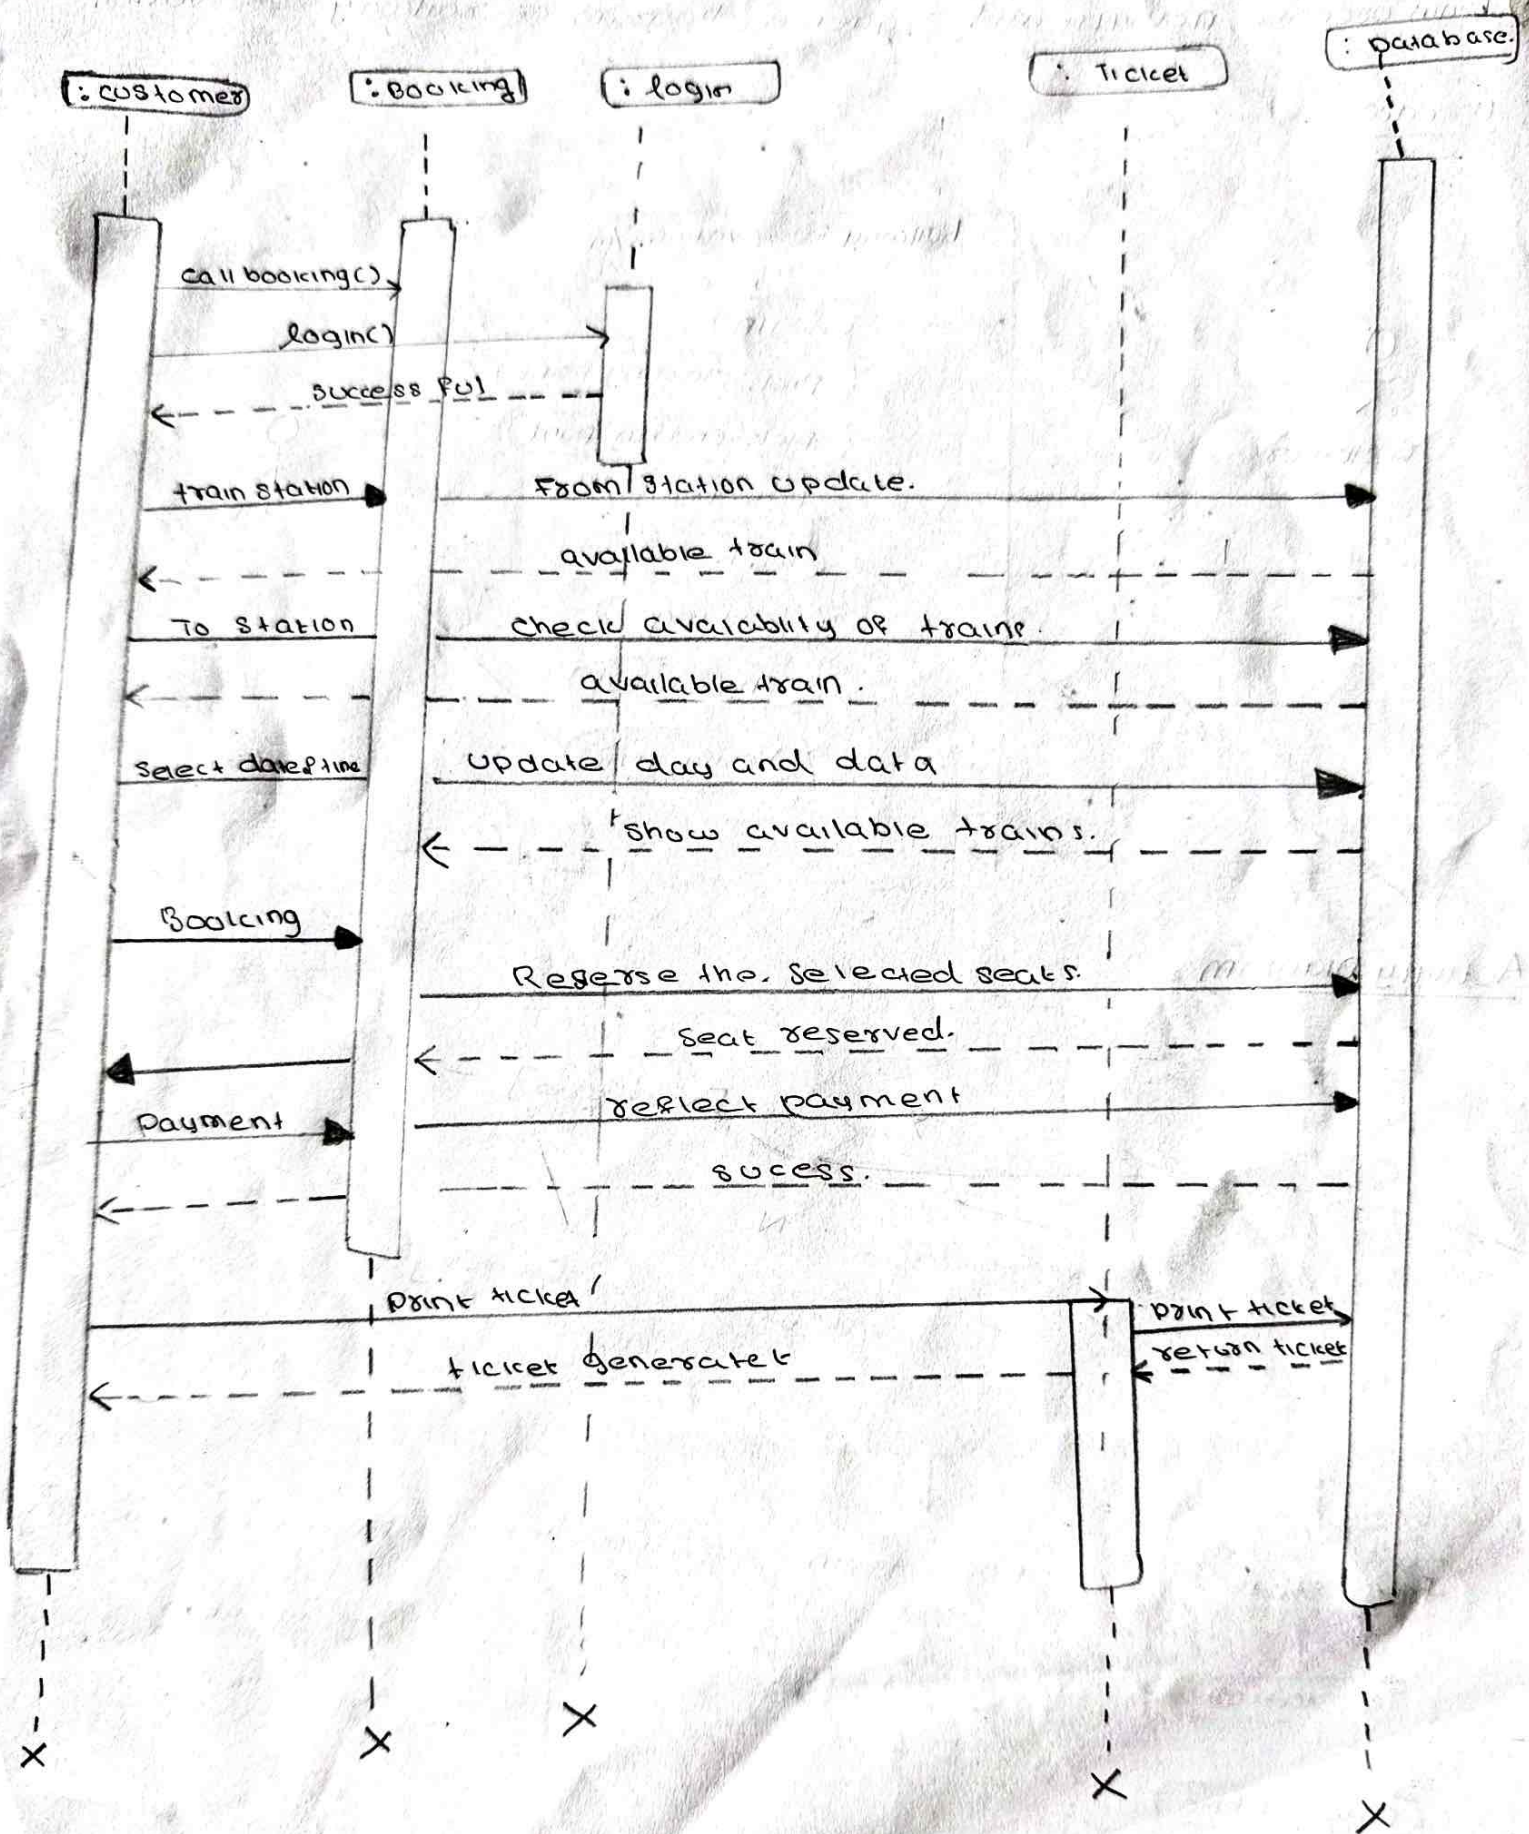 : customer
: Booking
: login
: Ticket
: Database.
call booking()
login()
successful
train station
From station update.
available train
To station
check avaiablity of trains.
available train.
Select date&time
update day and data
show available trains.
Booking
Reserse the. selected seats.
seat reserved.
Payment
reflect payment
sucess.
print ticket
print ticket
return ticket
ticket generatet